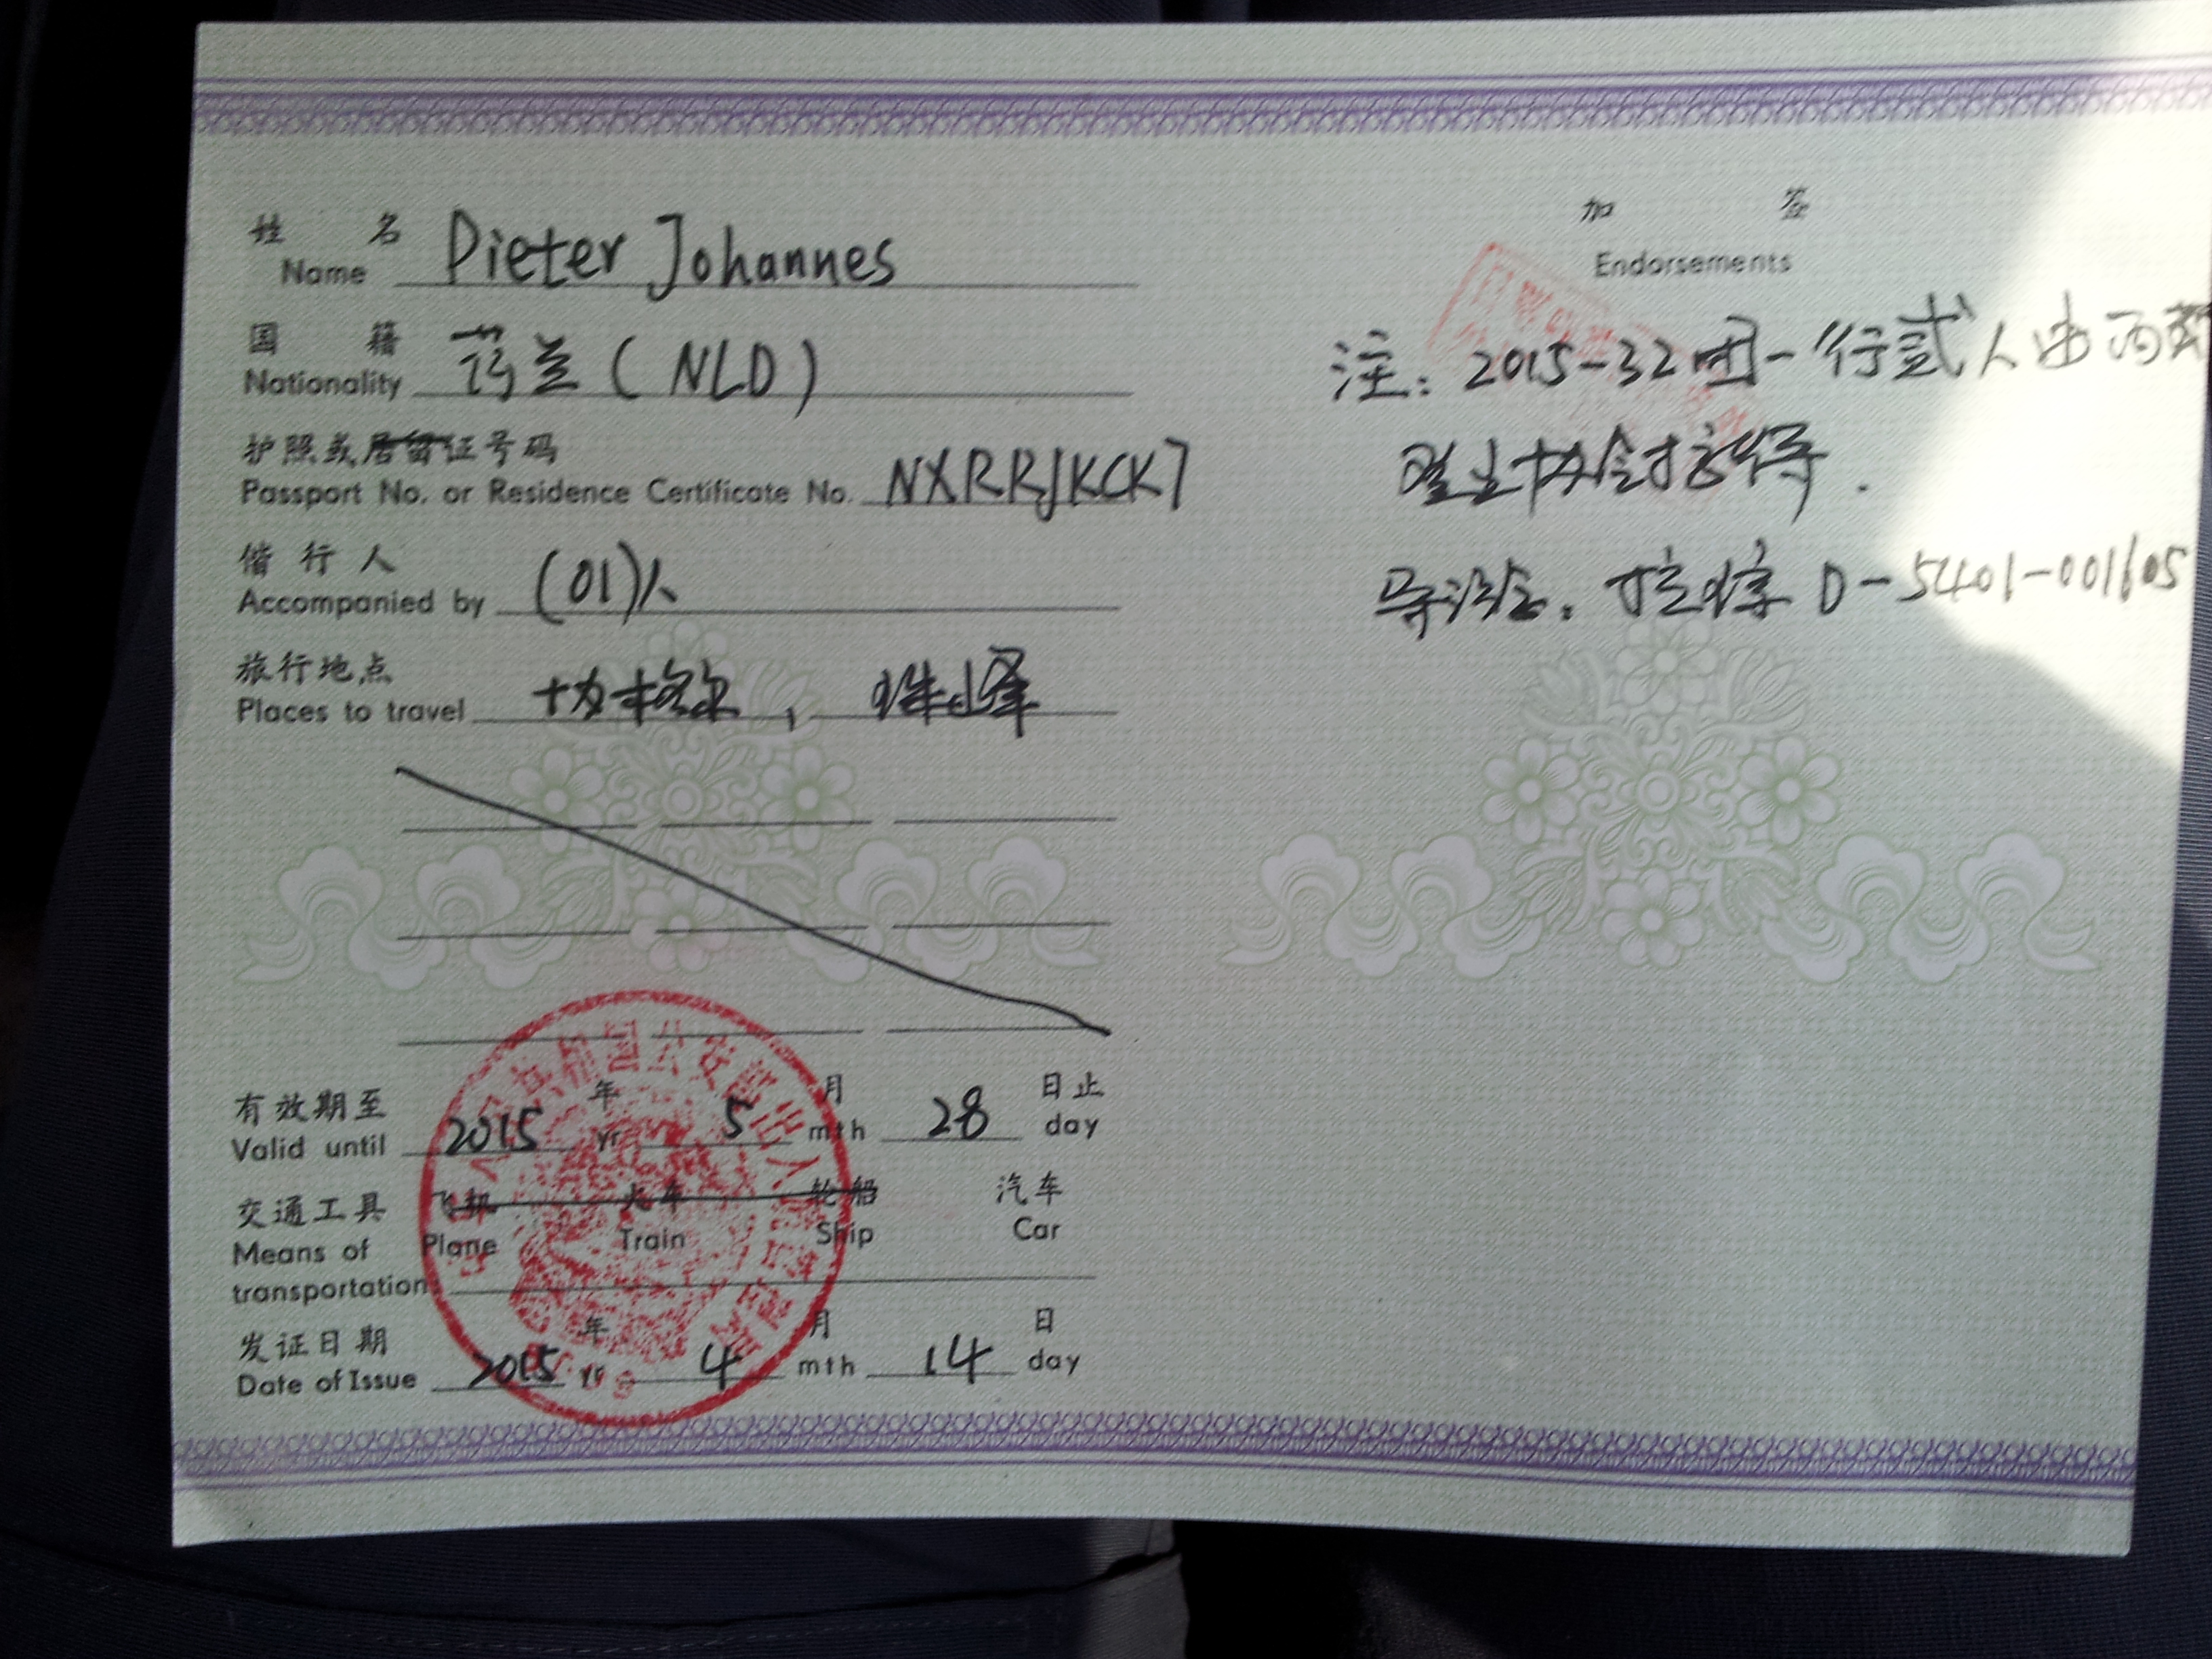 姓 名 Pieter Johannes
Name
国 籍 荷兰 (NLD)
Nationality
护照或居留证号码
Passport No. or Residence Certificate No. NXRRJKCK7
偕 行 人 (01)人
Accompanied by
旅行地点 协格尔, 珠峰
Places to travel
有效期至 2015 年 5 月 28 日止
Valid until yr mth day
交通工具 飞机 火车 轮船 汽车
Means of Plane Train Ship Car
transportation
发证日期 2015 年 4 月 14 日
Date of Issue yr mth day
加 签
Endorsements
注: 2015-32团一行贰人由西藏
协会接待.
导游: D-5401-001605